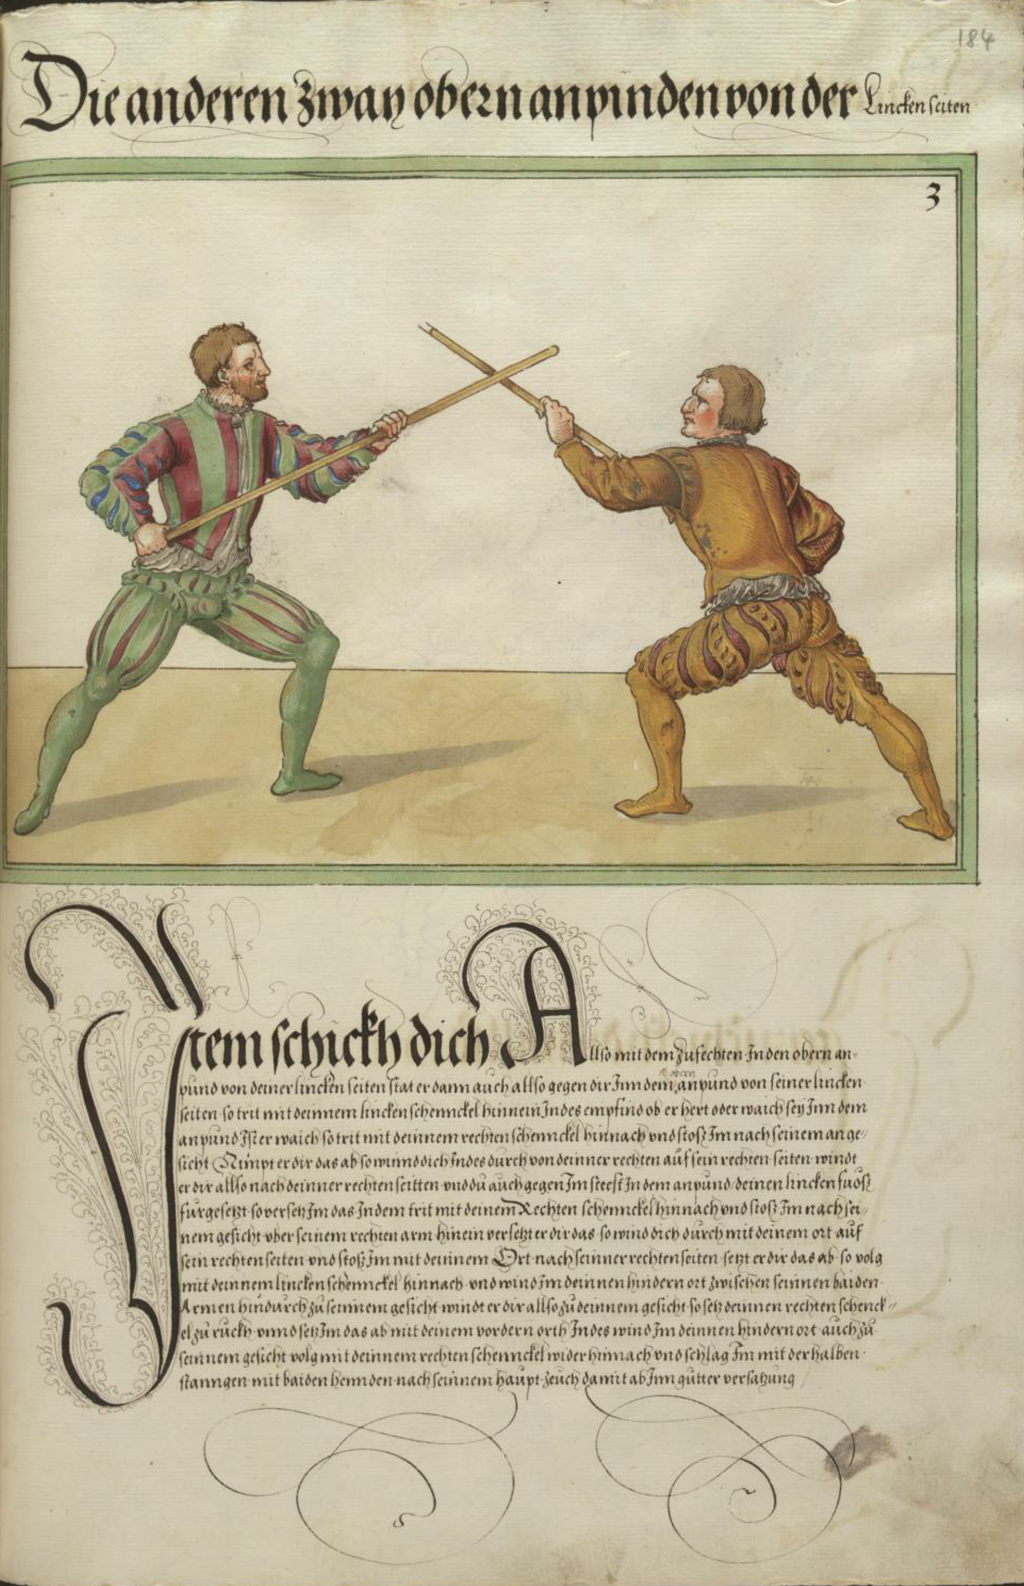 184
Die anderen zway obern anpinden von der Lincken seiten
3
Item schickh dich Allso mit dem zufechten Inden obern an-
pund von deiner lincken seiten stat er dann auch allso gegen dir Inn dem obern anpund von seiner lincken
seiten so trit mit deinnem lincken schennckel hinnein Indes empfind ob er hert oder waich sey Inn dem
anpund Ist er waich so trit mit deinnem rechten schennckel hinnach vnd stosz Im nach seinem ange-
sicht Nimpt er dir das ab so winnd dich Indes durch von deinner rechten auf sein rechten seiten windt
er dir allso nach deinner rechten seitten vnd du auch gegen Im steest In dem anpund deinen lincken fuosz
furgesetzt so versetz Im das Indem trit mit deinem Rechten schennckel hinnach vnd stosz Im nach sei-
nem gesicht vber seinem rechten arm hinein versetzt er dir das so wind dich durch mit deinem ort auf
sein rechten seiten vnd stosz Im mit deinnem Ort nach seinner rechten seiten setzt er dir das ab so volg
mit deinnem lincken schennckel hinnach vnd wind Im deinnen hindern ort zwischen seinnen baiden
Armen hindurch zu seinnem gesicht windt er dir allso zu deinnem gesicht so setz deinnen rechten schenck-
el zu ruckh vnnd setz Im das ab mit deinem vordern orth Indes wind Im deinnen hindern ort auch zu
seinnem gesicht volg mit deinnem rechten schennckel wider hinnach vnd schlag Im mit der halben
stanngen mit baiden hennden nach seinnem haupt zeuch damit ab Inn gutter versatzung